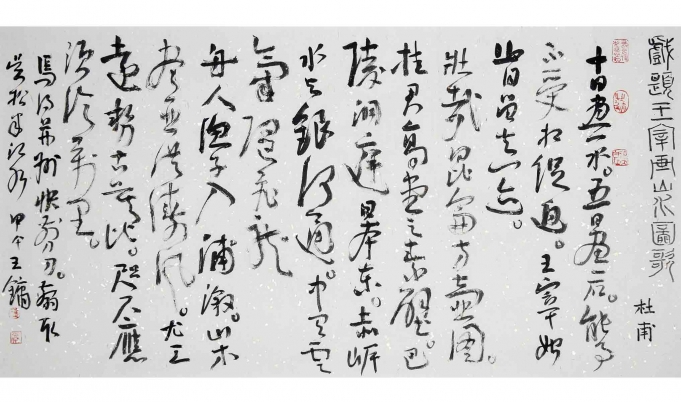 戲題王宰画山水圖歌
杜甫
十日畫一水。五日畫一石。能事
不受相促迫。王宰始
肯留真迹。
壯哉昆侖方壺圖。
挂君高堂之素壁。巴
陵洞庭日本東。赤岸
水与銀河通。中有雲
氣隨飛龍
舟人漁子入浦溆。山木
盡亞洪濤風。尤工
遠勢古莫比。咫尺應
須論萬里。
焉得并州快剪刀。剪取
吴松半江水 甲午王鏞